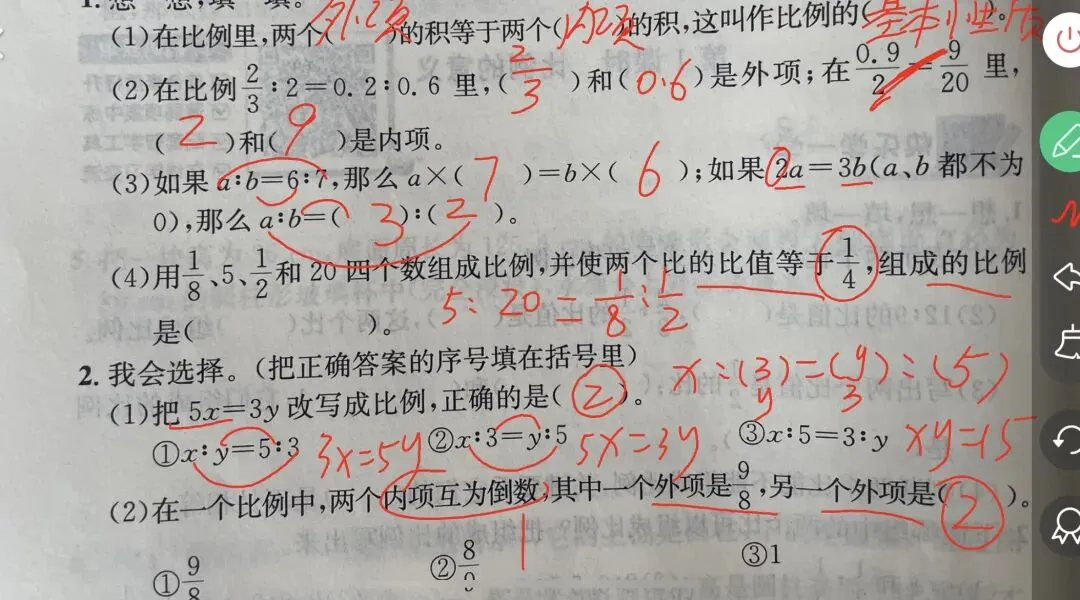 1. 想一想,填一填。
(1)在比例里,两个(外项)的积等于两个(内项)的积,这叫作比例的(基本性质)。
(2)在比例2/3:2=0.2:0.6里,(2/3)和(0.6)是外项;在0.9/2=9/20里,
(2)和(9)是内项。
(3)如果a:b=6:7,那么a×(7)=b×(6);如果2a=3b(a、b都不为
0),那么a:b=(3):(2)。
(4)用1/8、5、1/2和20四个数组成比例,并使两个比的比值等于1/4,组成的比例
5:20=1/8:1/2
是( )。
2. 我会选择。(把正确答案的序号填在括号里)
x:(3)=(y):(5)
y 3
(1)把5x=3y改写成比例,正确的是(②)。
①x:y=5:3 3x=5y ②x:3=y:5 5x=3y ③x:5=3:y xy=15
(2)在一个比例中,两个内项互为倒数,其中一个外项是9/8,另一个外项是(②)。
1
①9/8 ②8/9 ③1